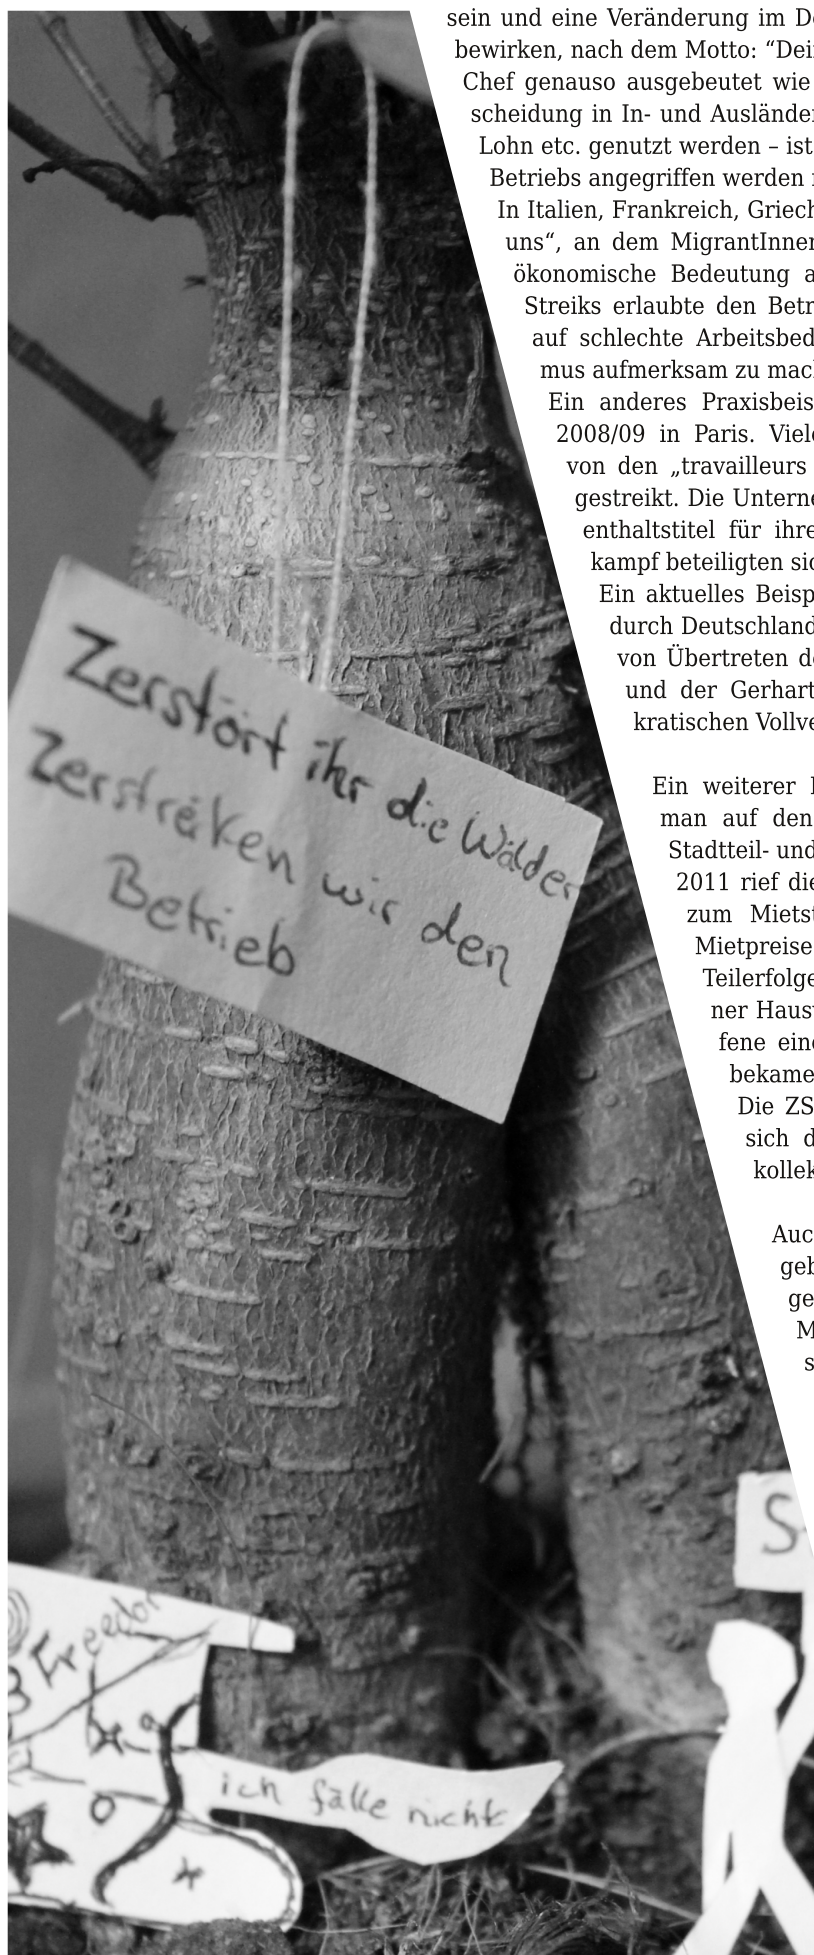 sein und eine Veränderung im De
bewirken, nach dem Motto: “Dein
Chef genauso ausgebeutet wie
scheidung in In- und Ausländer
Lohn etc. genutzt werden – ist
Betriebs angegriffen werden
In Italien, Frankreich, Griech
uns“, an dem MigrantInnen
ökonomische Bedeutung a
Streiks erlaubte den Betr
auf schlechte Arbeitsbed
mus aufmerksam zu mach
Ein anderes Praxisbeis
2008/09 in Paris. Viele
von den „travailleurs
gestreikt. Die Unterne
enthaltstitel für ihre
kampf beteiligten sic
Ein aktuelles Beisp
durch Deutschland
von Übertreten de
und der Gerhart
kratischen Vollve
Ein weiterer
man auf den
Stadtteil- und
2011 rief die
zum Mietst
Mietpreise
Teilerfolge
ner Haus
fene eine
bekame
Die ZS
sich d
kollek
Auc
geb
ge
M
s
Zerstört ihr die Wälder
Zerstreiken wir den
Betrieb
S
Freedom
ich fälle nicht